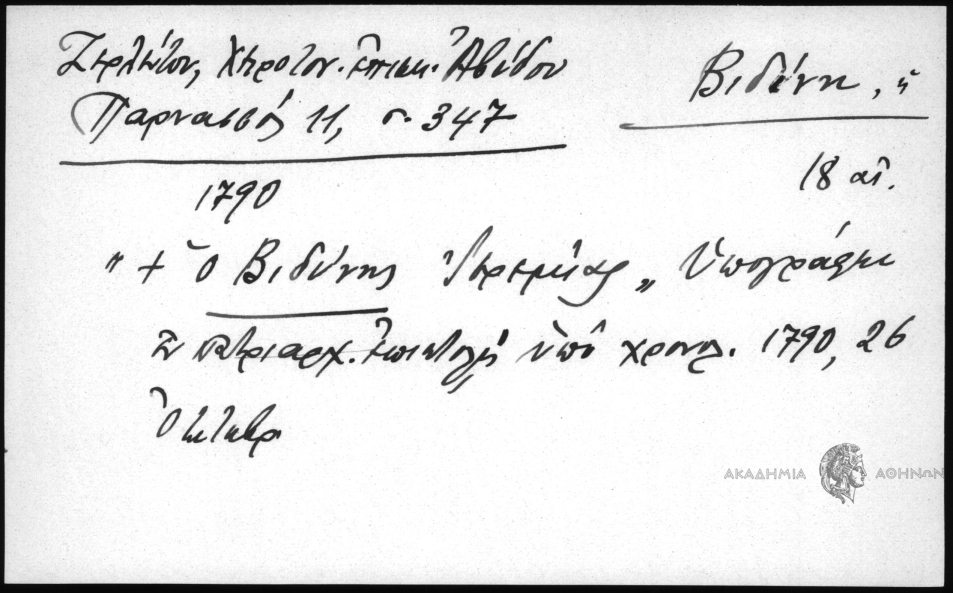 Ζερλέντου, Χειροτον. ἐπισκ. Ἀβύδου
Παρνασσός 11, σ. 347
Βιδύνη, ἡ
18 αἰ.
1790
" + ὁ Βιδύνης Ἱερεμίας „ ὑπογράφει
ἐν πατριαρχ. ἐπιστολῇ ὑπό χρονολ. 1790, 26
Ὀκτωβρ
ΑΚΑΔΗΜΙΑ ΑΘΗΝΩΝ